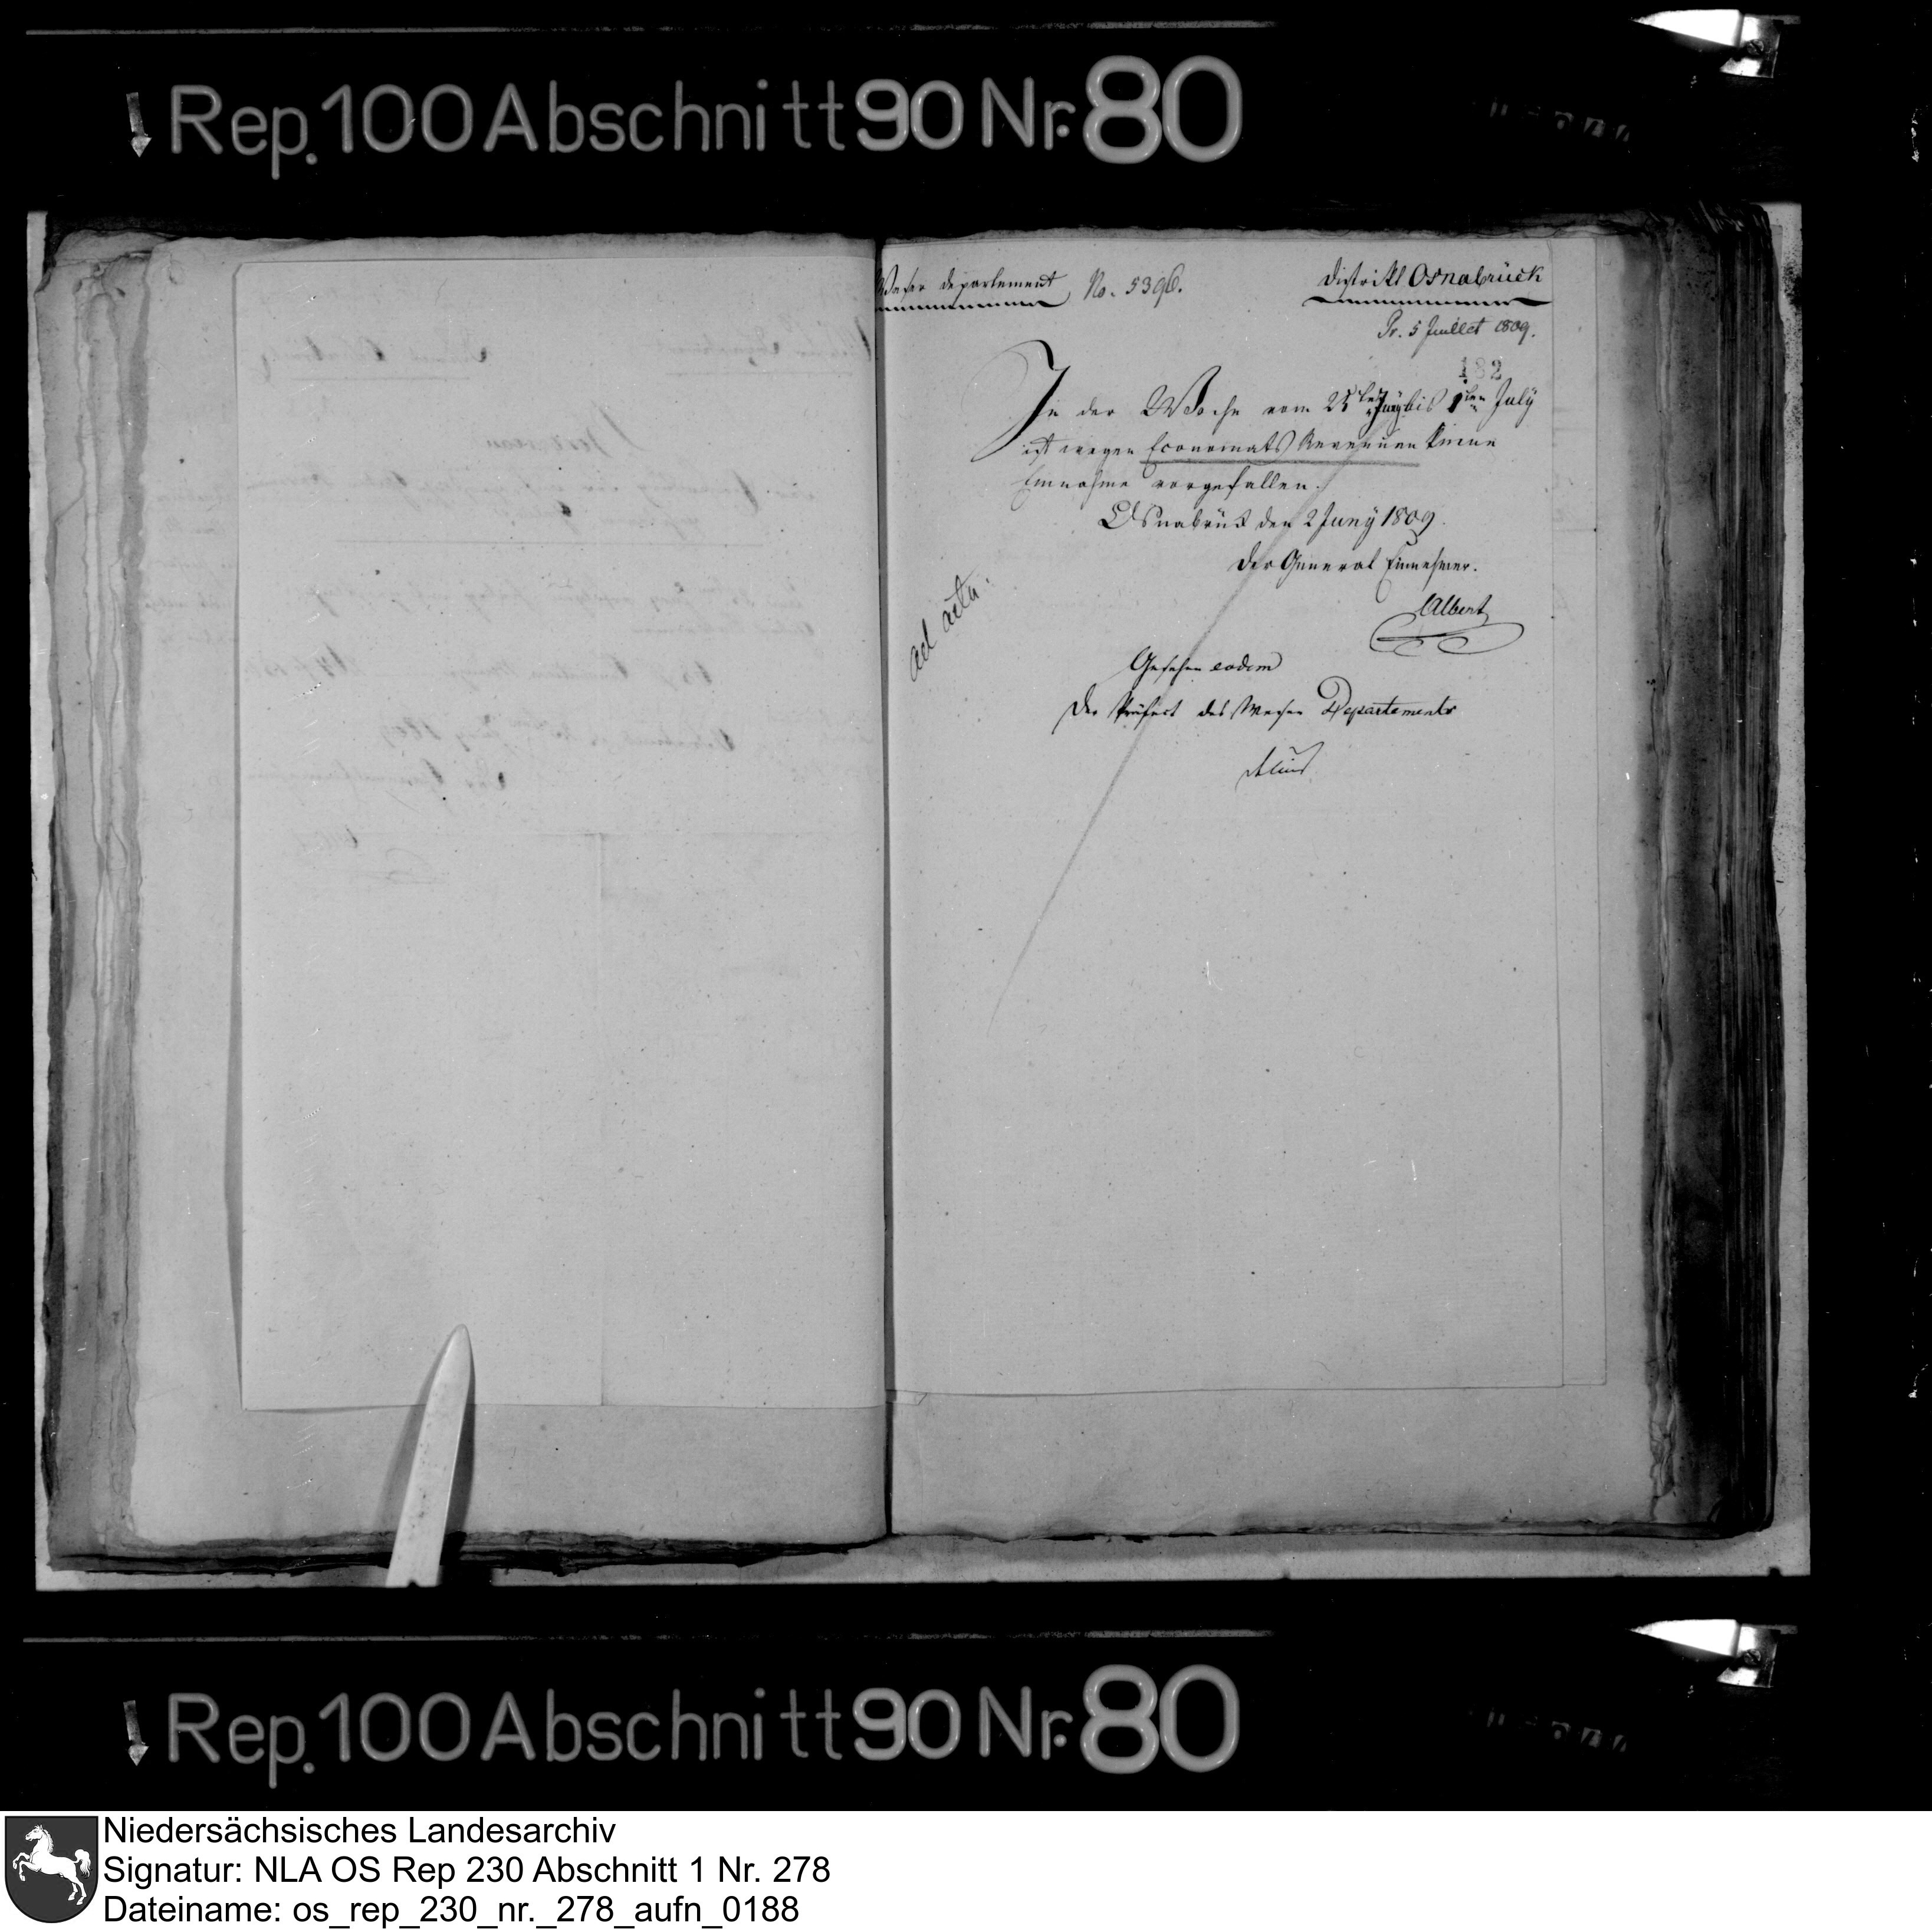 Rep. 100 Abschnitt 90 Nr. 80
Weser departement No. 5396. District Osnabrück
Pr. 5 Juillet 1809.
182
In der Woche vom 25ten Juny bis 1ten July
ist wegen Economats Revenuen keine
Einnahme vorgefallen.
Osnabrück den 2 Juny 1809.
der General Einnehmer.
Albert
ad acta.
Gesehen eodem
Der Präfect des Weser Departements
Rep. 100 Abschnitt 90 Nr. 80
Niedersächsisches Landesarchiv
Signatur: NLA OS Rep 230 Abschnitt 1 Nr. 278
Dateiname: os_rep_230_nr._278_aufn_0188